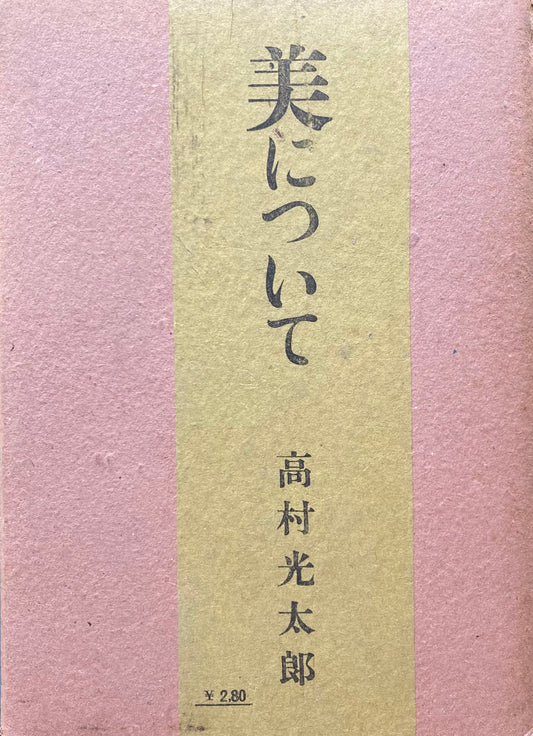 美について
高村光太郎
¥ 2.80